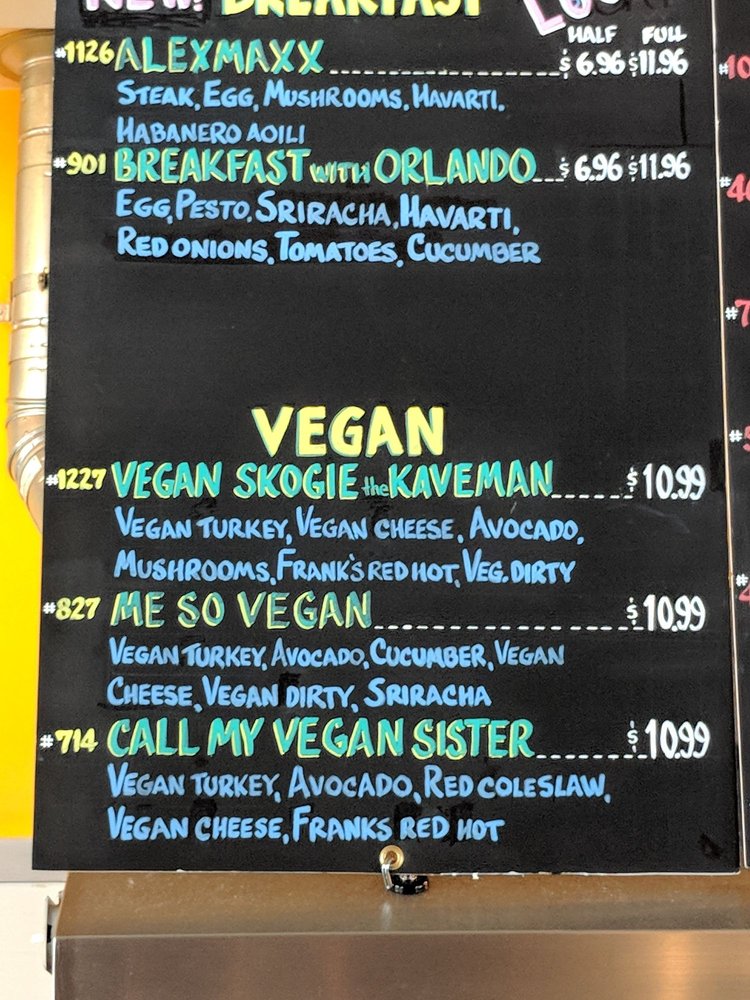 NEW! BREAKFAST
HALF FULL
#1126 ALEXMAXX $6.96 $11.96
STEAK, EGG, MUSHROOMS, HAVARTI,
HABANERO AOILI
#901 BREAKFAST WITH ORLANDO $6.96 $11.96
EGG, PESTO, SRIRACHA, HAVARTI,
RED ONIONS, TOMATOES, CUCUMBER
VEGAN
#1227 VEGAN SKOGIE the KAVEMAN $10.99
VEGAN TURKEY, VEGAN CHEESE, AVOCADO,
MUSHROOMS, FRANK'S RED HOT, VEG. DIRTY
#827 ME SO VEGAN $10.99
VEGAN TURKEY, AVOCADO, CUCUMBER, VEGAN
CHEESE, VEGAN DIRTY, SRIRACHA
#714 CALL MY VEGAN SISTER $10.99
VEGAN TURKEY, AVOCADO, RED COLESLAW,
VEGAN CHEESE, FRANKS RED HOT